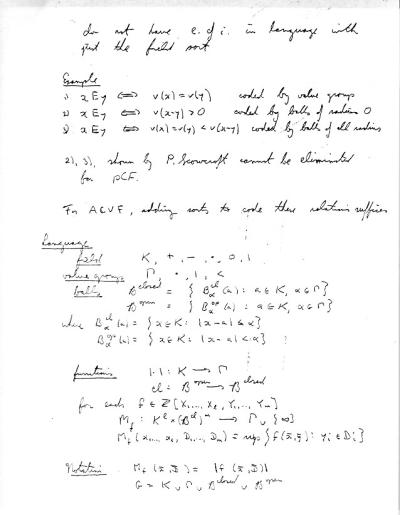 do not have e. of i. in language with
just the field sort
Example
1) x E y ⟺ v(x) = v(y) coded by value group
2) x E y ⟺ v(x-y) > 0 coded by balls of radius 0
3) x E y ⟺ v(x) = v(y) < v(x-y) coded by balls of all radius
2), 3), shown by P. Scowcroft cannot be eliminated
for pCF.
For ACVF, adding sorts to code these relations suffices
Language
field K, +, -, ·, 0, 1
value group Γ, ·, 1, <
balls B^closed = { B_α^cl (a) : a ∈ K, α ∈ Γ }
B^open = { B_α^op (a) : a ∈ K, α ∈ Γ }
where B_α^cl (a) = { x ∈ K : |x-a| ≤ α }
B_α^op (a) = { x ∈ K : |x-a| < α }
functions |·| : K → Γ
cl : B^open → B^closed
for each f ∈ Z[X_1, ..., X_l, Y_1, ..., Y_m]
M_f : K^l × (B^cl)^m → Γ ∪ {∞}
M_f (x_1, ..., x_l, D_1, ..., D_m) = sup { f(x̄, ȳ) : y_i ∈ D_i }
Notation M_f (x̄, D̄) = |f (x̄, D̄)|
G = K ∪ Γ ∪ B^closed ∪ B^open